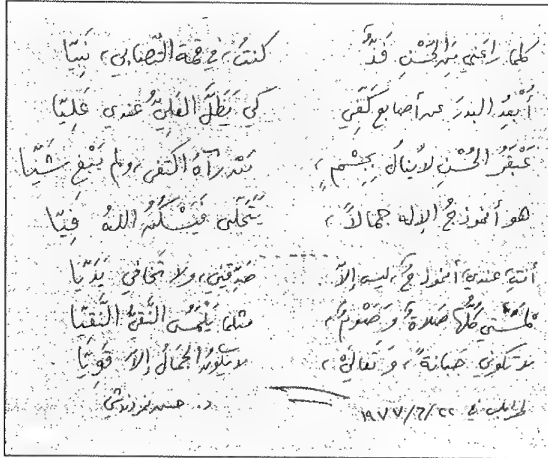 كلما راعني من الحسن قدٌّ كنتُ، في قمة التصابي، نبيّا
أُبعِدُ البدرَ عن أصابع كفّي كي يَظَلَّ العَلِيُّ عندي عَلِيّا
عَبْقَرُ الحُسْنِ لا يُنالُ بجِسْمٍ، مَنْ رآهُ اكتفى، ولم يَبْغِ شيّا
هو أنموذجُ الإله جمالاً، يَتَجلّى فَيَسْكُنُ اللهُ فِيّا
أنتِ عندي أنموذجٌ، ليس إلاّ صَدِّقيني، ولا تخافي يَدَيّا
لمستي كُلُّها صلاةٌ وصَوْمٌ، مثلما يَلْمسُ النَّقِيُّ النَّقيّا
لا تكوني جبانةً، وتعالَيْ، لا يكونُ الجمالُ إلاّ قَوِيّا
في ٢٢/٦/١٩٧٧ د.